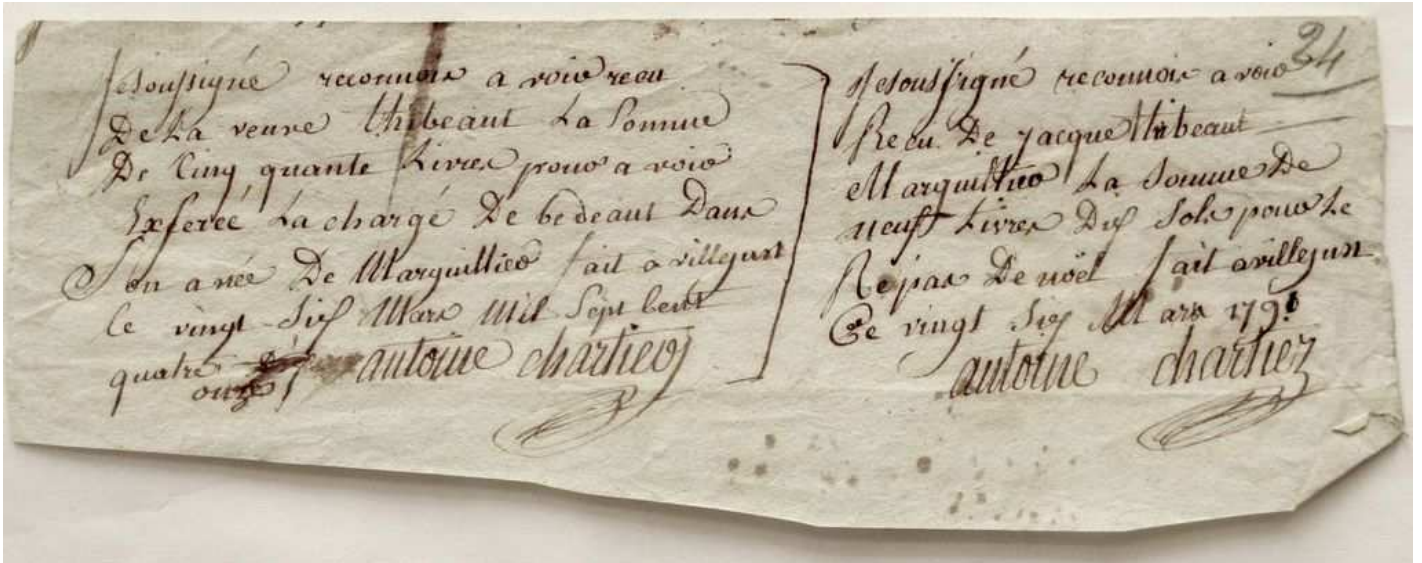 Je soussigné reconnois a voir recu
De La veuve thibeaut La Somme
De Cinq quante Livres pour a voir
Exfercé La chargé De bedeaut Dans
Son anée De Marguillier fait a villejust
Ce vingt Six Mars Mil Sept Cent
quatre
onze antoine chartier
34
Je soussigné reconnois a voir
Recu De jacque thibeaut
Marguillier La Somme De
neuf Livres Dix Sols pour Le
Repas De noël fait a villejust
Ce vingt Six Mars 1791
antoine chartier